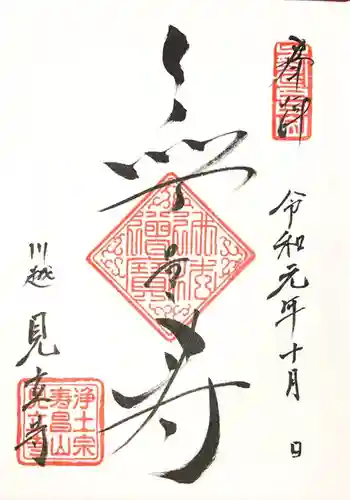 奉拝
令和元年十月 日
無量寿
川越
見立寺
佛法僧寳
浄土宗
寿昌山
見立寺